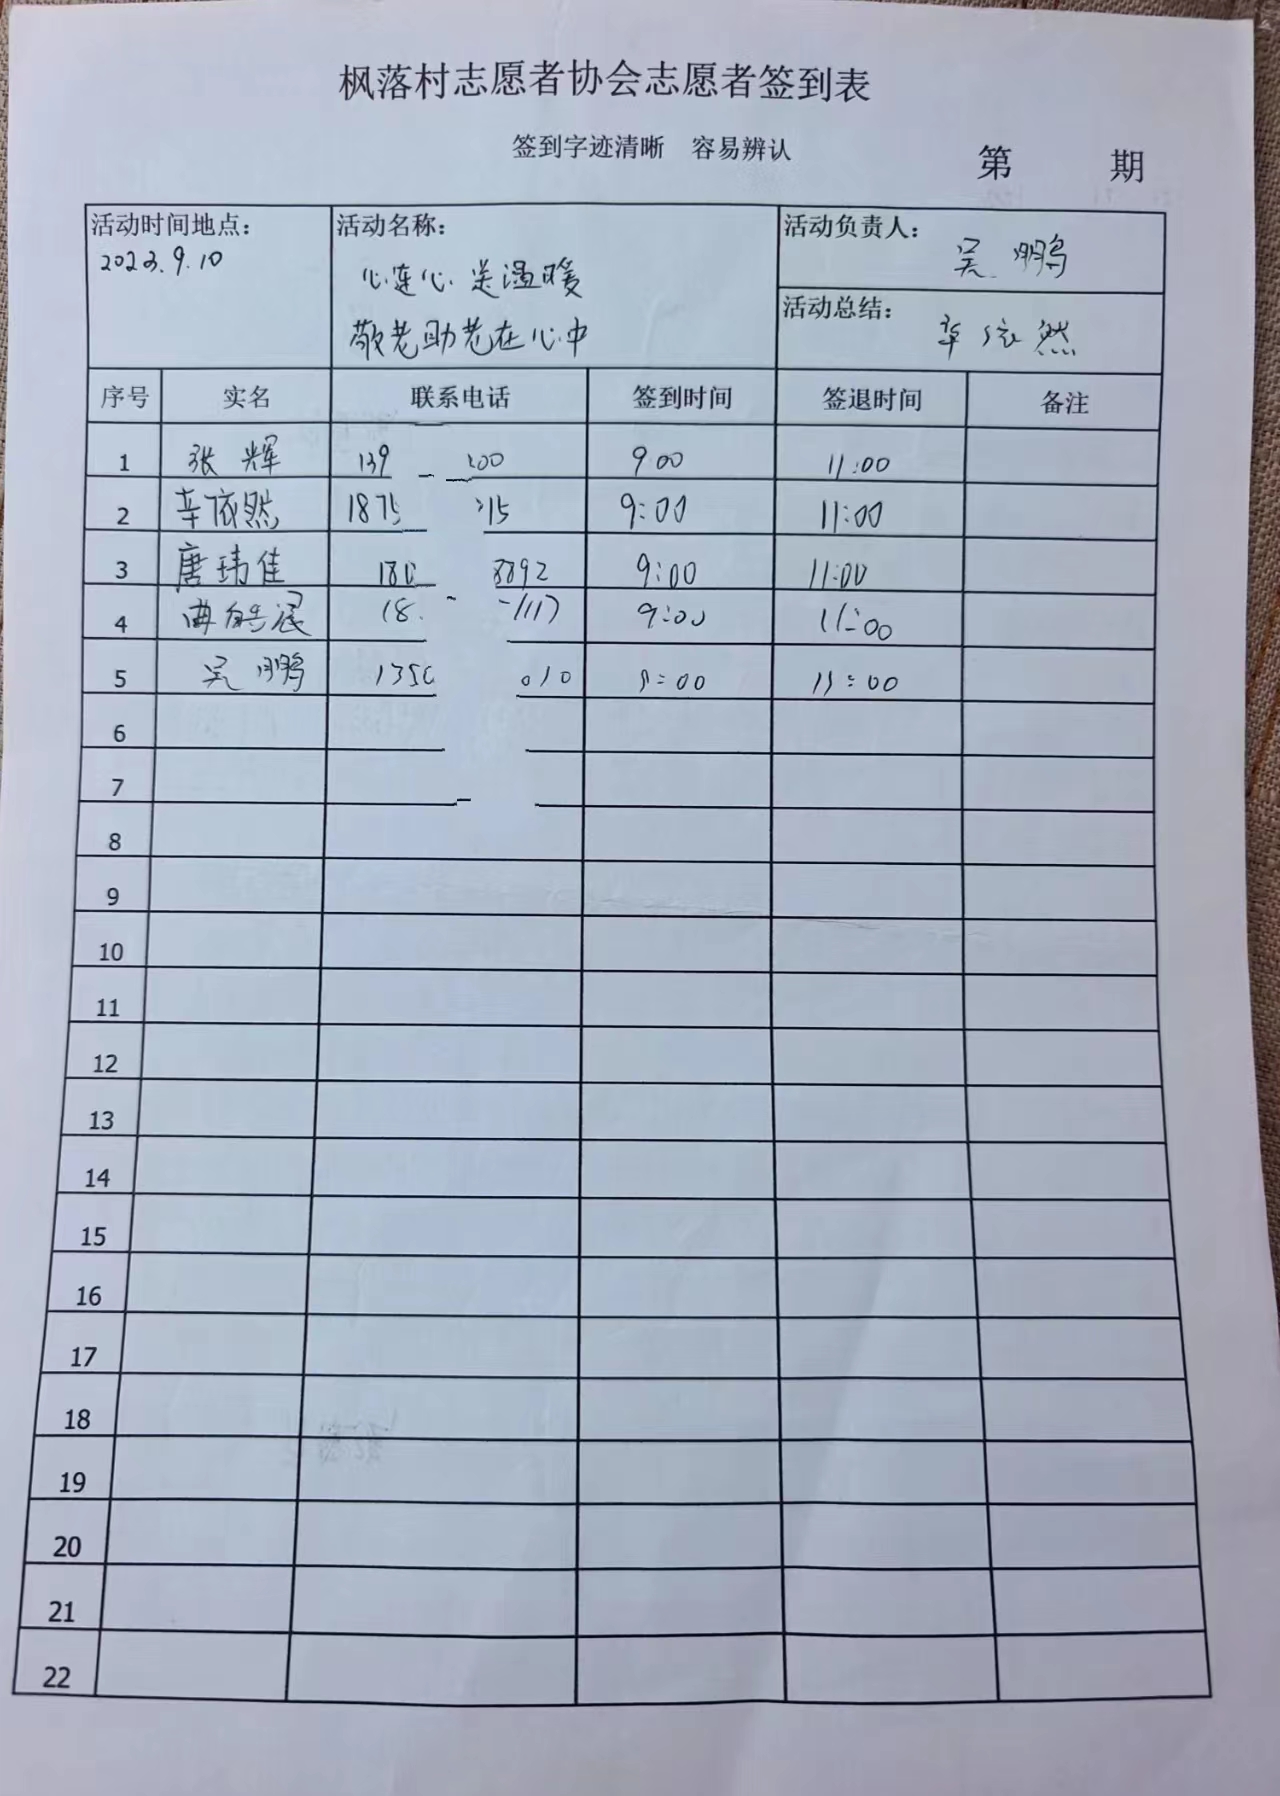 枫落村志愿者协会志愿者签到表
签到字迹清晰 容易辨认
第 期
活动时间地点： 活动名称： 活动负责人：
2023.9.10 心连心 送温暖 吴鹏
敬老助老在心中
活动总结： 辛依然
序号 实名 联系电话 签到时间 签退时间 备注
1 张辉 139 00 9 00 11:00
2 辛依然 1875 15 9:00 11:00
3 唐玮佳 180 8892 9:00 11:00
4 曲皓晨 18 117 9:00 11:00
5 吴鹏 1350 010 9:00 11:00
6
7
8
9
10
11
12
13
14
15
16
17
18
19
20
21
22